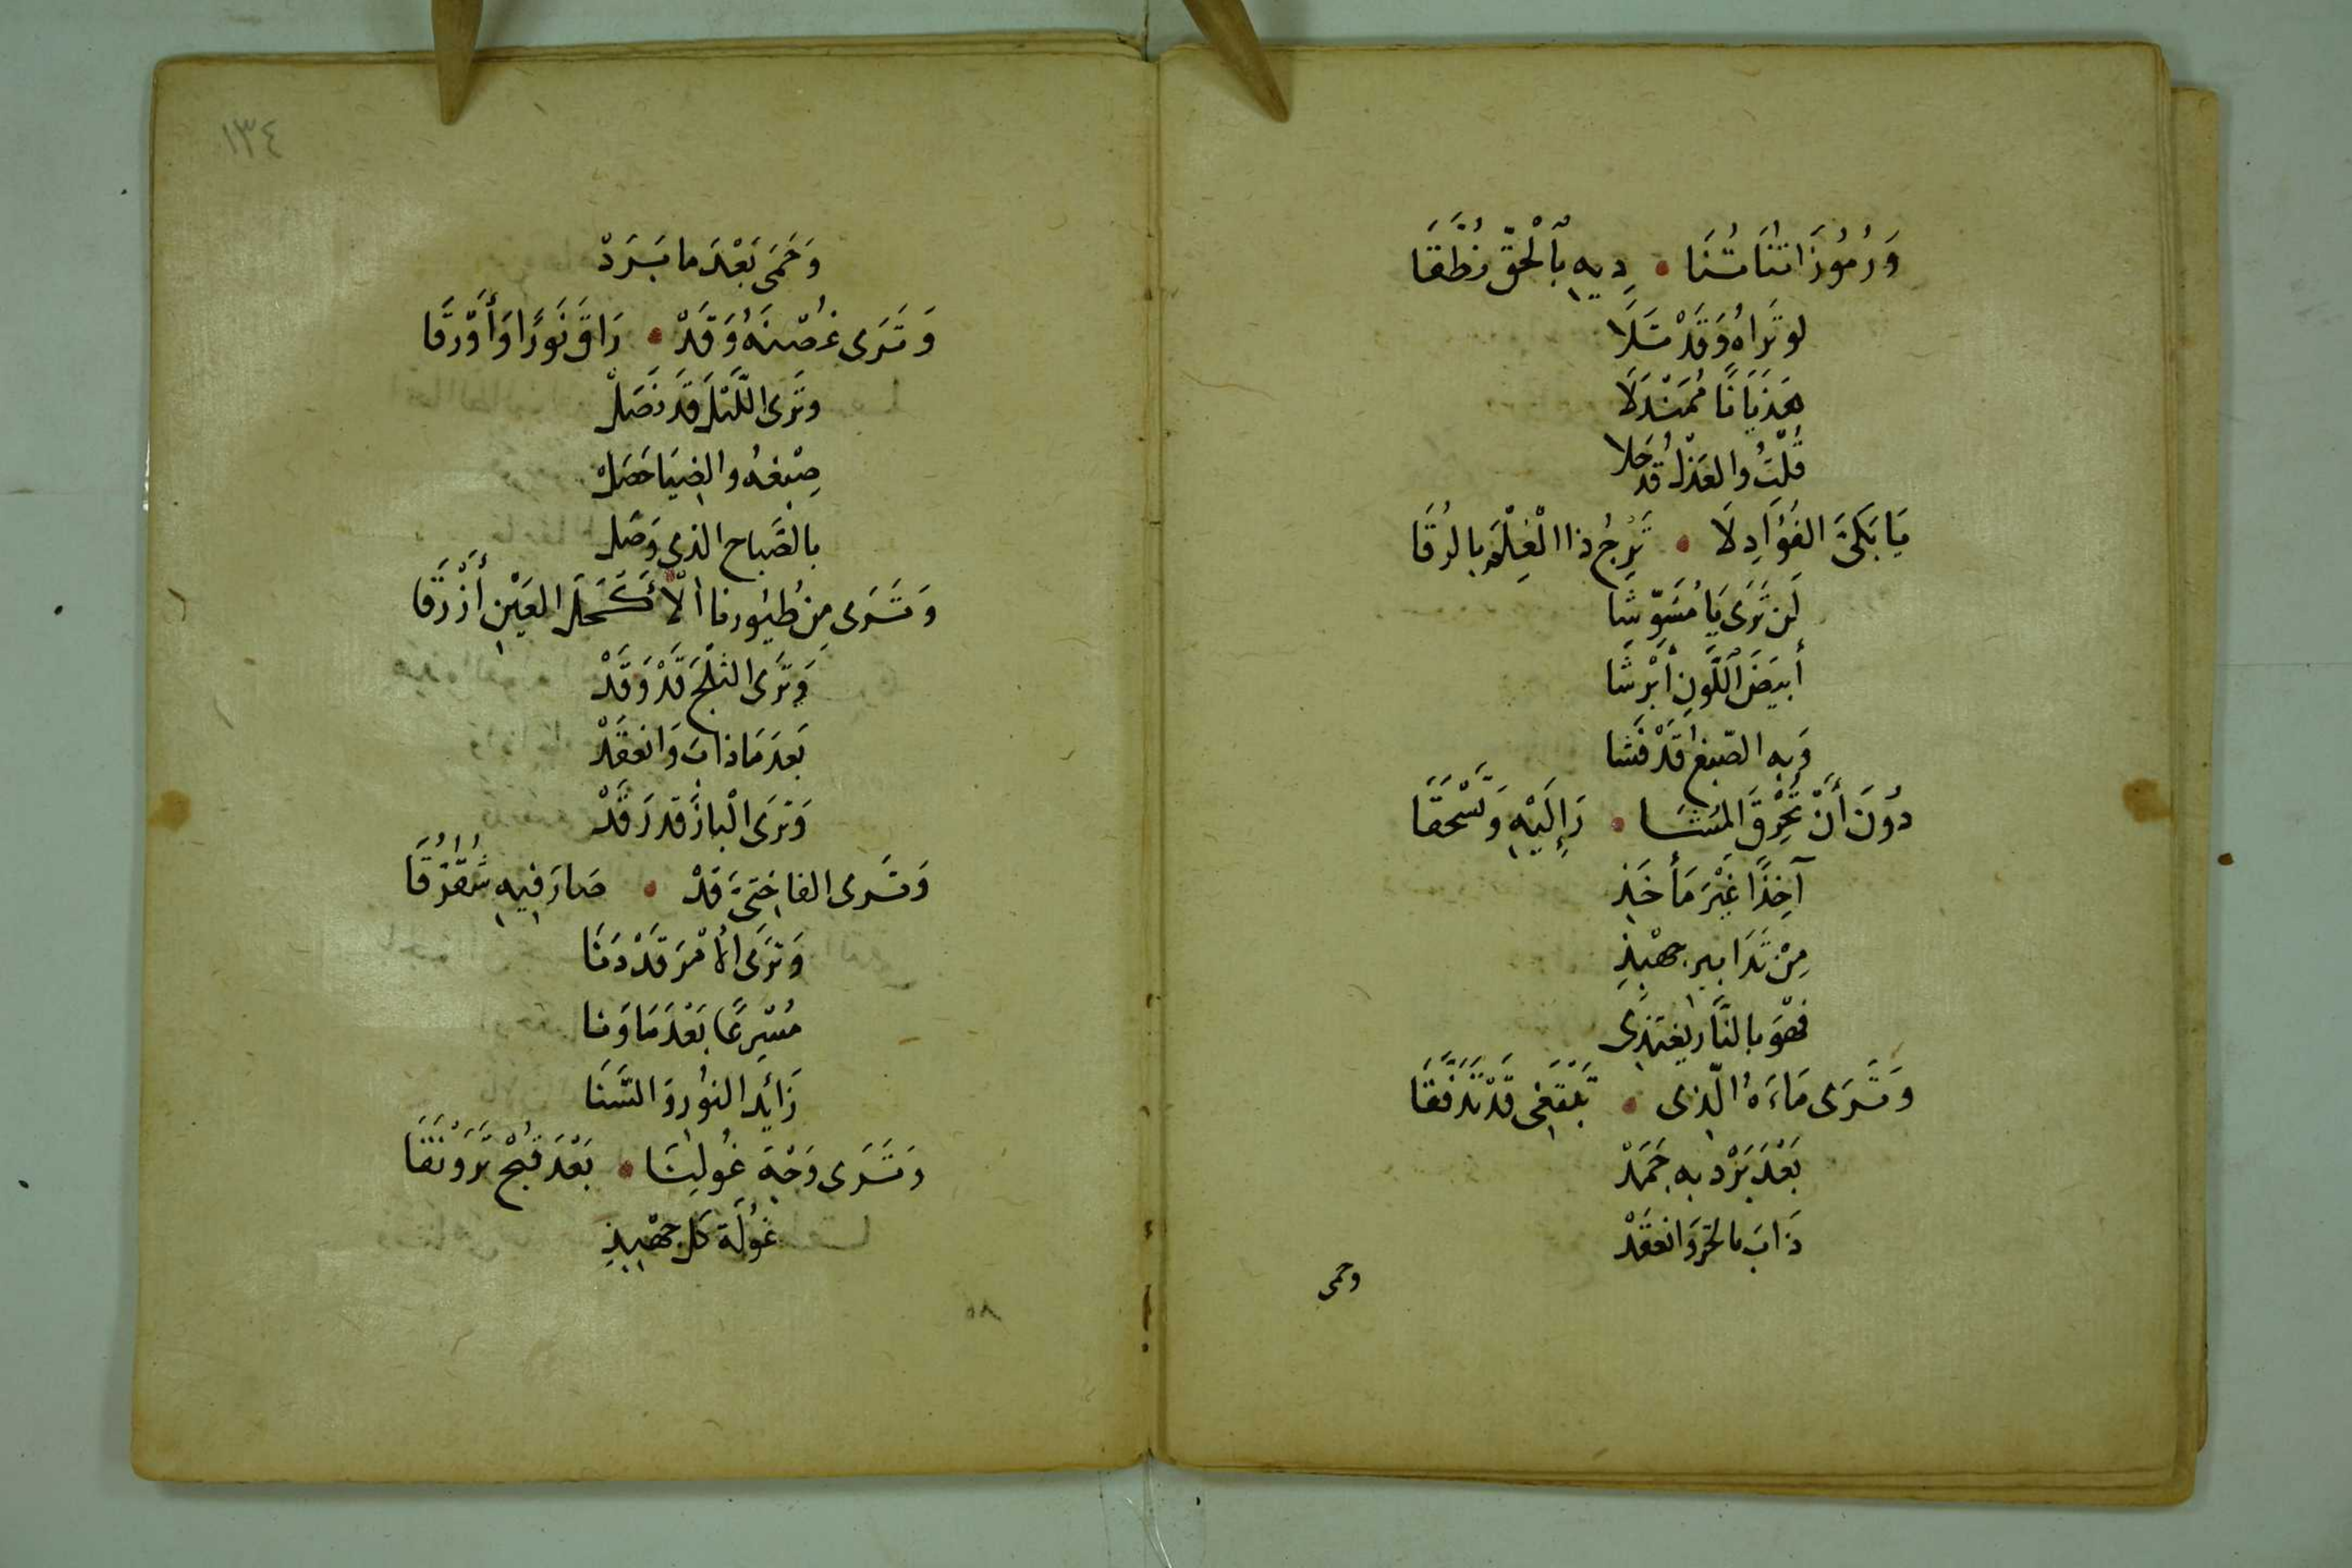 وَرُمُوزَاتُنَا تُنَا • دِيهِ بِٱلْحَقِّ نُطَّقَا
لو تَرَاهُ وَقَدْ سَلَا
هَذَيَانًا مُمَنْدَلَا
قُلْتُ والعَذْلُ قد حَلا
يَا بَكِىَّ الفُؤَادِ لَا • تَرْجُ ذا الْعِلْمَ بالرُقَا
لَن تَرَى يَا مُشَوِّشَا
أَبيَضَ اَللَّونِ أَبْرَشَا
وَبِهِ الصّبغُ قَدْ فَشا
دُونَ أَنْ تَحْرِقَ المُشَا • رَ إِلَيْهِ وَتَسْحَقَا
آخِذًا غَيْرَ مَأخَذِ
مِنْ تَدَابيرِ جِهْبِذِ
فَهْوَ بالنَّارِ يَغتَذِى
وَتَرَى مَاءَهُ الَّذِى • تَبْتَغِى قَدْ تَدَفَّقَا
بَعْدَ بَرْدٍ بِهِ جَمَدْ
ذَابَ بالحَرِّ وَانعَقَدْ
وحمى
١٣٤
وَحَمَى بَعْدَ ما بَرَدْ
وَتَرَى غُصْنَهُ وَقَدْ • رَاقَ نَورًا وَأَوْرَقَا
وتَرَى اللَّيْلَ قَد نَصَلْ
صِبْغُهُ والضِيَا حَصَلْ
بالصَّباح الذى وَصَلْ
وَتَرَى مِن طُيُورِنا الْأَكْحَلَ العَيْنِ أَزْرَقَا
وَتَرَى الثلْجَ قَدْ وَقَدْ
بَعدَ مَا ذابَ وَانعَقَدْ
وَتَرَى الْبازَ قد رَقَدْ
وَتَرَى الفاخِتىَّ قَدْ • صَارَ فِيهِ شُقُرُّقَا
وَتَرَى الأَمْرَ قَدْ دَنَا
مُسْرِعًا بَعْدَ مَا وَنا
زَائِدَ النُورِ وَالسَّنَا
وَتَرَى وَجْهَ غُولِنَا • بَعْدَ قُبْحٍ تَرَوْنَقَا
غُولَة كل جِهْبِذِ
٨٥